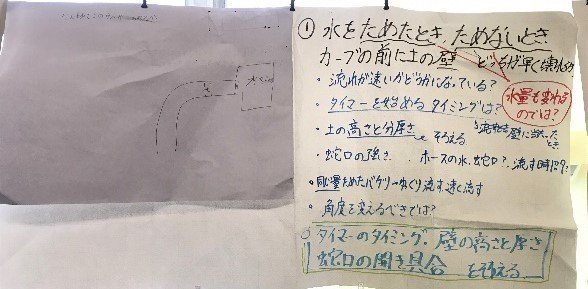 ① 水をためたとき、ためないとき、
カーブの前に土の壁 どっちが早く壊れるか
・流れが速いかどうかになっている?
水量も変わるのでは?
・タイマーを始めるタイミングは?
・土の高さと分厚さをそろえる
壁に当たったとき
・蛇口の強さ ホースの水、蛇口?、流す時間?
・同じ量ためたバケツ→ゆっくり流す、速く流す
・角度を変えるべきでは?
タイマーのタイミング、壁の高さと厚さ
蛇口の開き具合 をそろえる